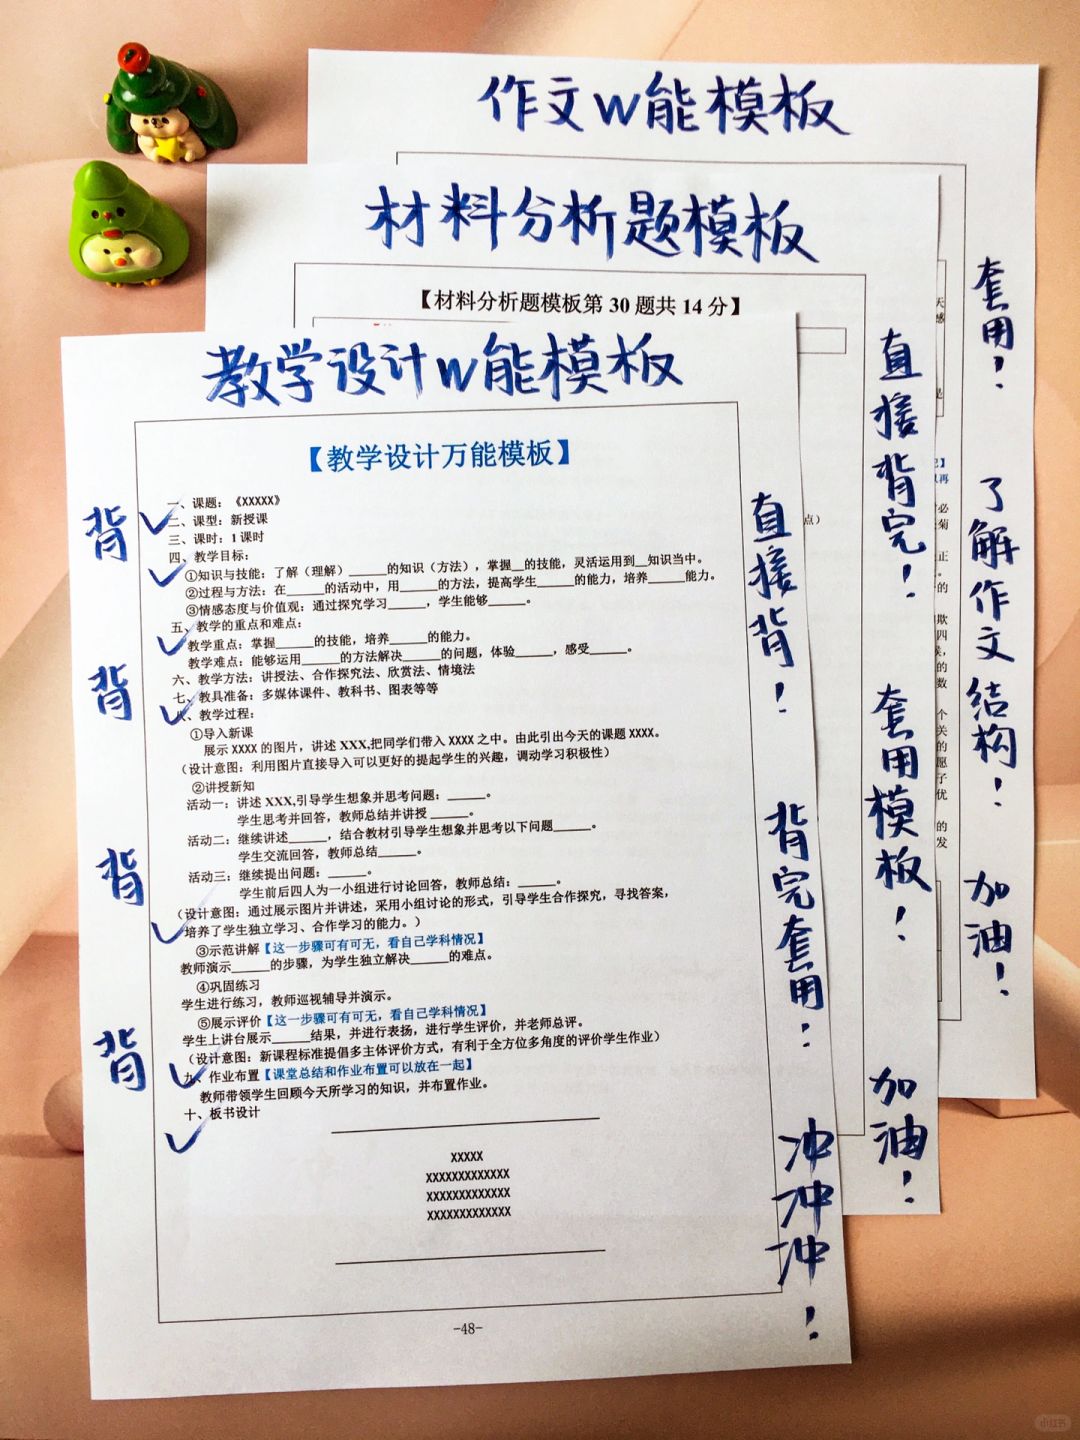 作文w能模板
套用！
了解作文结构！
加油！
材料分析题模板
【材料分析题模板第 30 题共 14 分】
直接背完！
套用模板！
加油！
教学设计w能模板
【教学设计万能模板】
一、课题：《XXXXX》
二、课型：新授课
三、课时：1 课时
四、教学目标：
①知识与技能：了解（理解）______的知识（方法），掌握__的技能，灵活运用到__知识当中。
②过程与方法：在______的活动中，用______的方法，提高学生______的能力，培养______能力。
③情感态度与价值观：通过探究学习______，学生能够______。
五、教学的重点和难点：
教学重点：掌握______的技能，培养______的能力。
教学难点：能够运用______的方法解决______的问题，体验______，感受______。
六、教学方法：讲授法、合作探究法、欣赏法、情境法
七、教具准备：多媒体课件、教科书、图表等等
八、教学过程：
①导入新课
展示 XXXX 的图片，讲述 XXX,把同学们带入 XXXX 之中。由此引出今天的课题 XXXX。
（设计意图：利用图片直接导入可以更好的提起学生的兴趣，调动学习积极性）
②讲授新知
活动一：讲述 XXX,引导学生想象并思考问题：______。
学生思考并回答，教师总结并讲授 ______。
活动二：继续讲述______，结合教材引导学生想象并思考以下问题______。
学生交流回答，教师总结______。
活动三：继续提出问题：______。
学生前后四人为一小组进行讨论回答，教师总结：______。
（设计意图：通过展示图片并讲述，采用小组讨论的形式，引导学生合作探究，寻找答案，
培养了学生独立学习、合作学习的能力。）
③示范讲解【这一步骤可有可无，看自己学科情况】
教师演示______的步骤，为学生独立解决______的难点。
④巩固练习
学生进行练习，教师巡视辅导并演示。
⑤展示评价【这一步骤可有可无，看自己学科情况】
学生上讲台展示______结果，并进行表扬，进行学生评价，并老师总评。
（设计意图：新课程标准提倡多主体评价方式，有利于全方位多角度的评价学生作业）
九、作业布置【课堂总结和作业布置可以放在一起】
教师带领学生回顾今天所学习的知识，并布置作业。
十、板书设计
XXXXX
XXXXXXXXXXXXX
XXXXXXXXXXXXX
XXXXXXXXXXXXX
-48-
背
背
背
背
直接背！
背完套用！
冲冲冲！
小红书